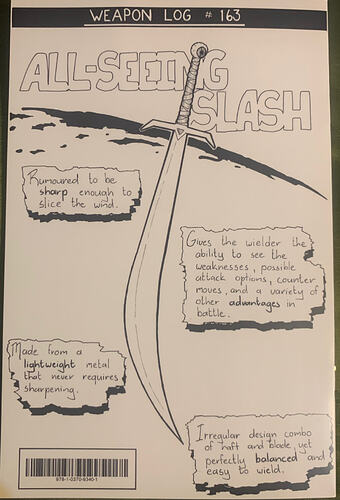 WEAPON LOG # 163
ALL-SEEING
SLASH
Rumoured to be
sharp enough to
slice the wind.
Gives the wielder the
ability to see the
weaknesses, possible
attack options, counter
moves, and a variety of
other advantages in
battle.
Made from a
lightweight metal
that never requires
sharpening.
Irregular design combo
of haft and blade, yet
perfectly balanced and
easy to wield.
978-1-0370-9340-1